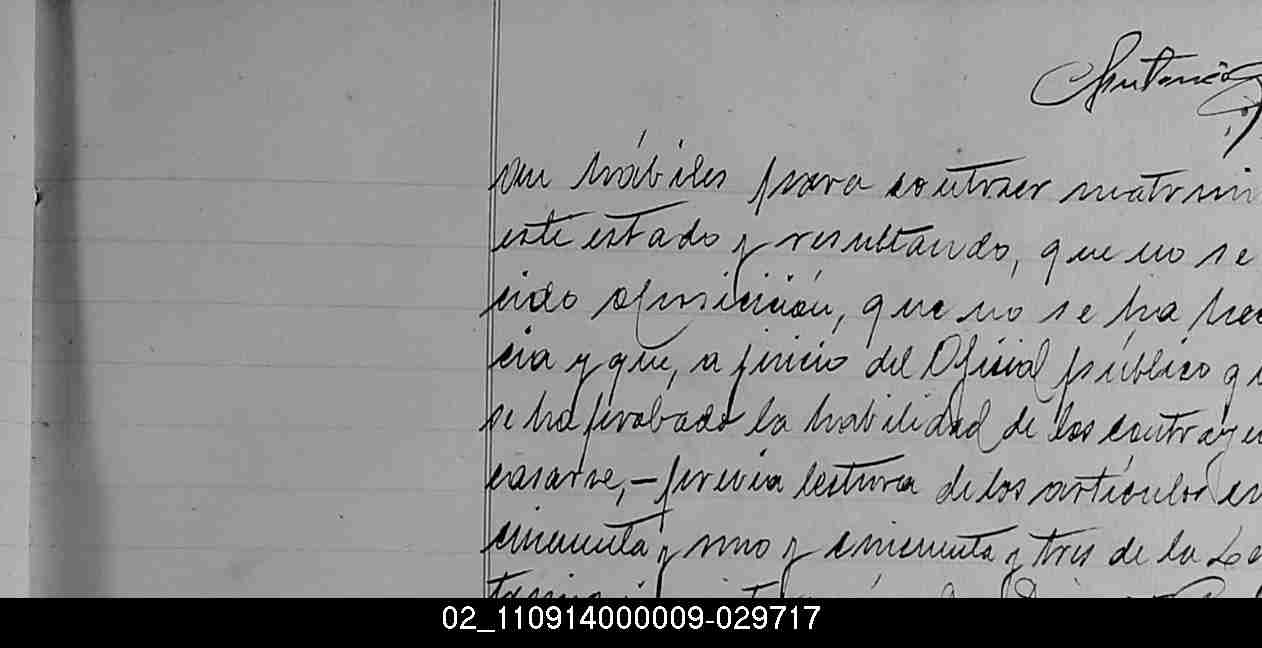 Antonio
ran hábiles para contraer matrimi
este estado y resultando, que no se
cido oposición, que no se ha hec
cia y que, a juicio del Oficial público q
se ha probado la habilidad de los contraye
casarse,— previa lectura de los artículos ci
cincuenta y uno y cincuenta y tres de la Le
02_110914000009-029717